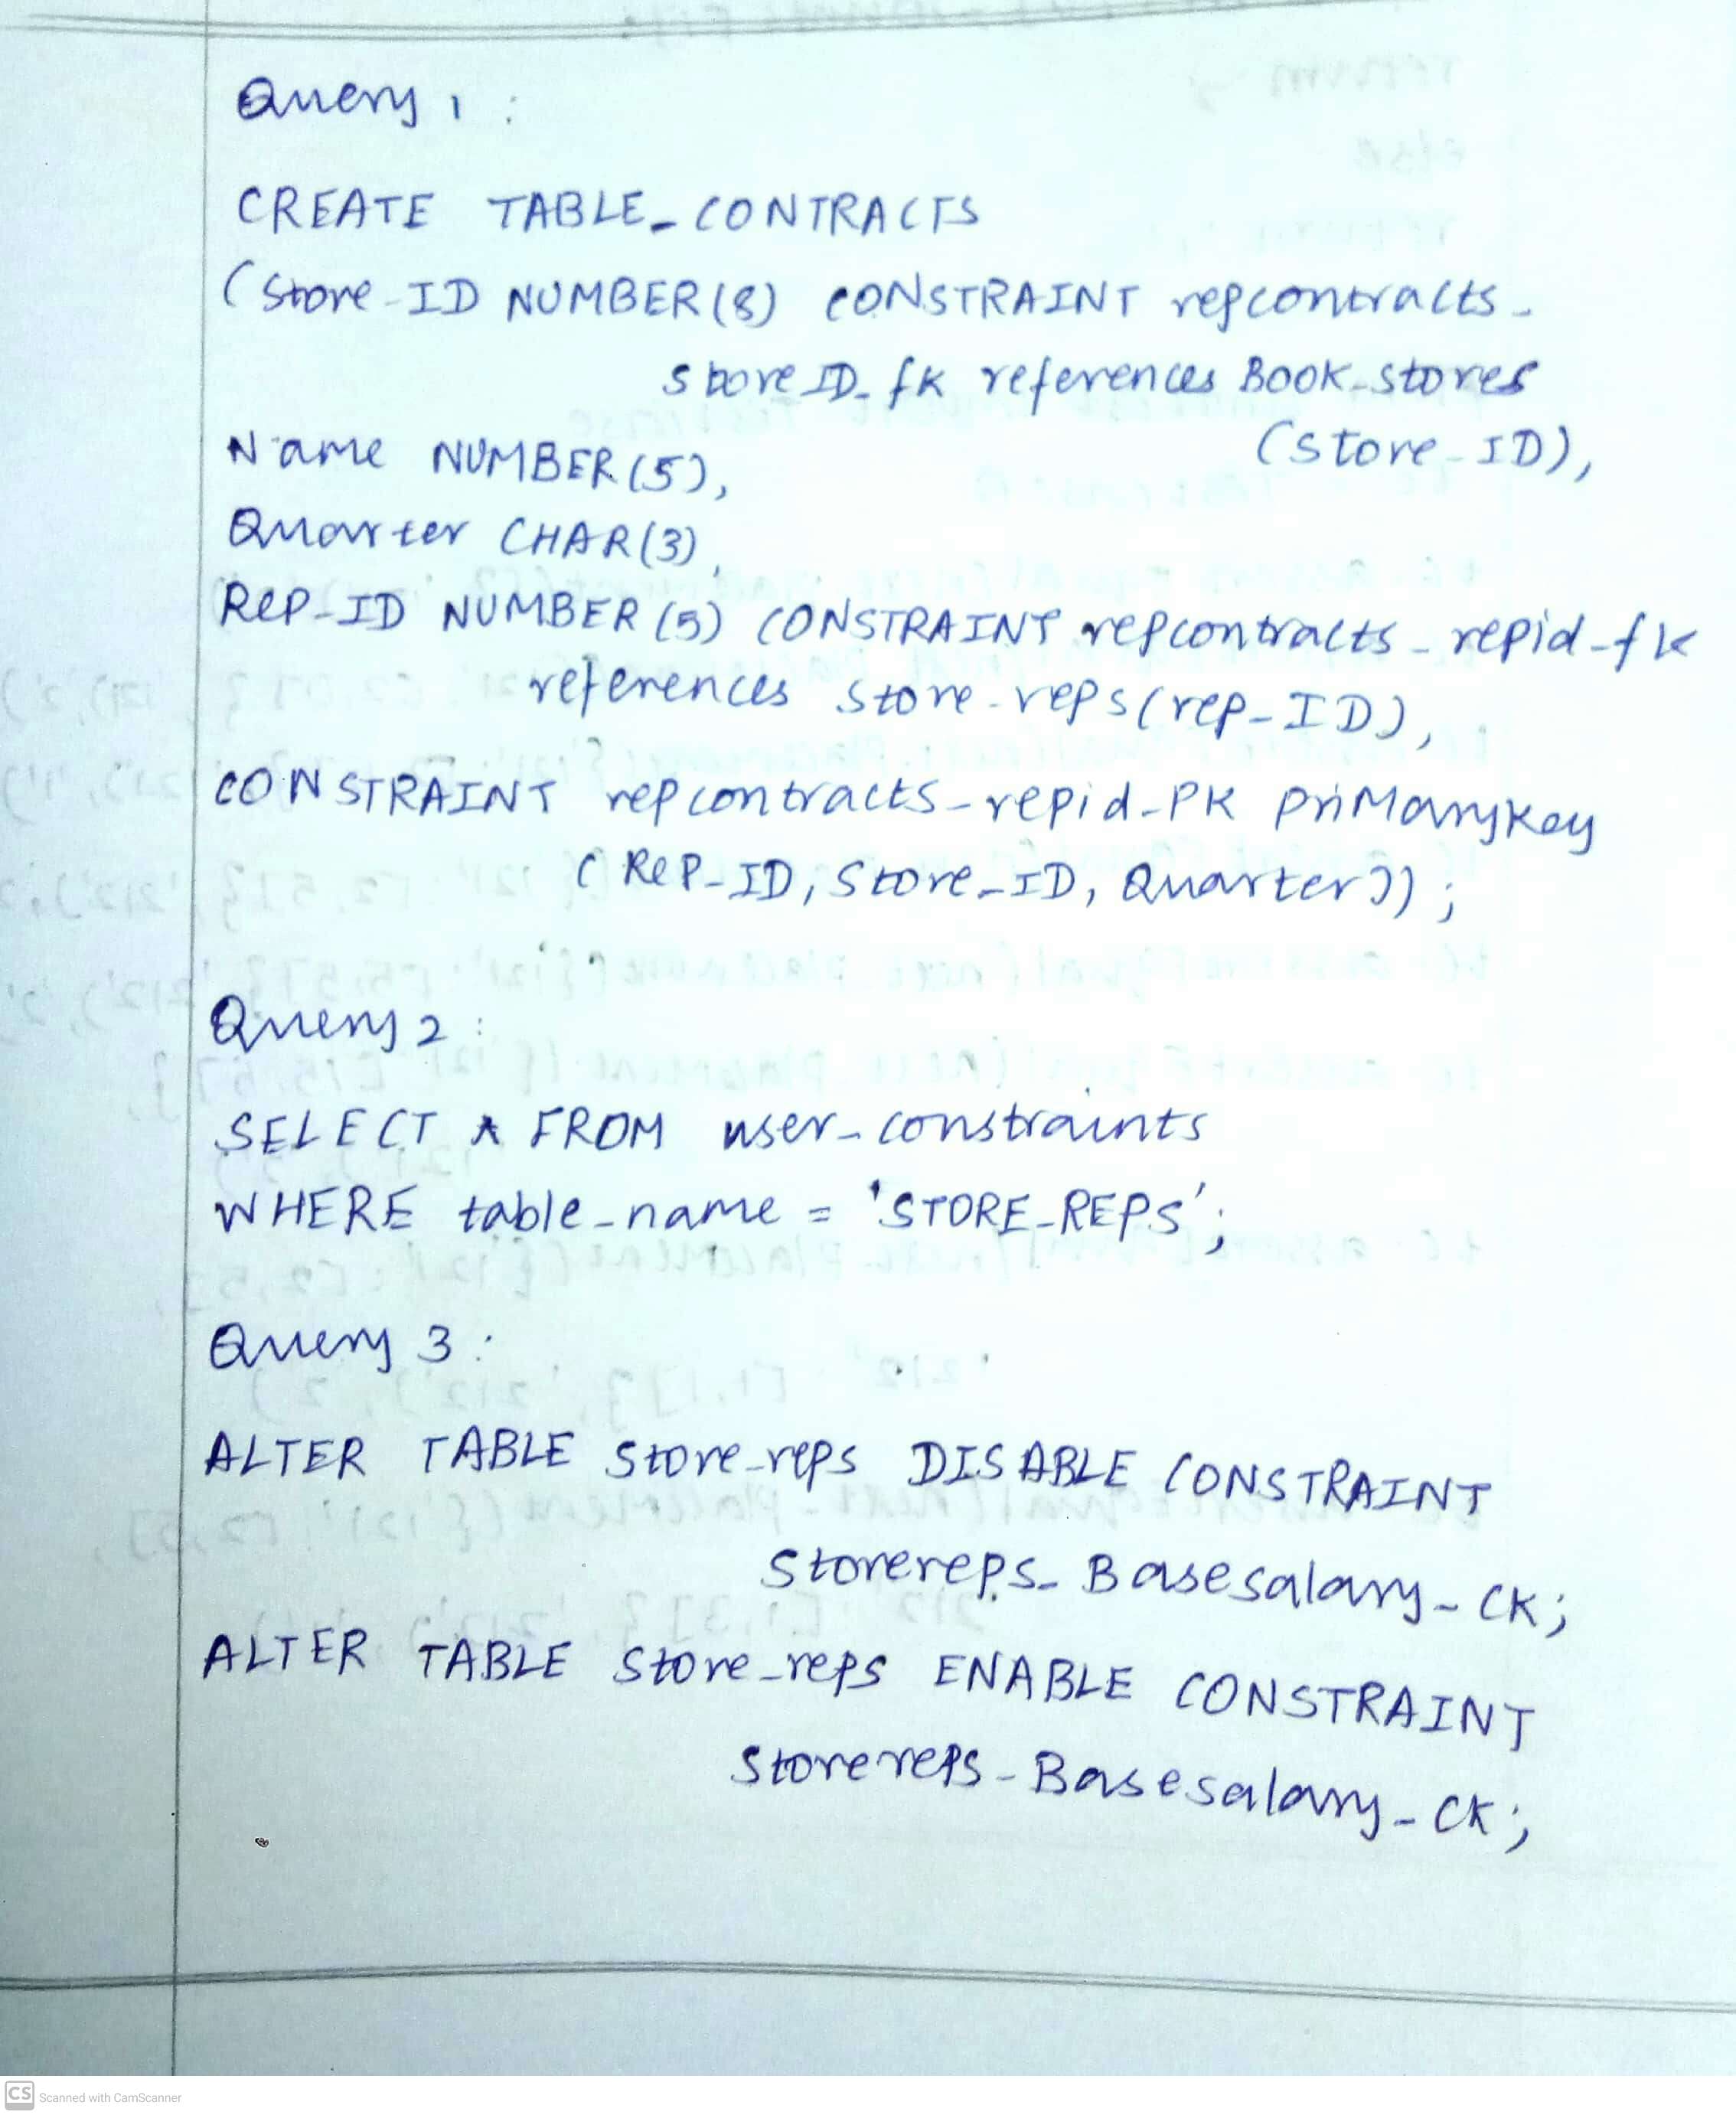 Query 1 :
CREATE TABLE_CONTRACTS
(Store_ID NUMBER(8) CONSTRAINT repcontracts_
storeID_fk references Book_stores
(Store_ID),
Name NUMBER(5),
Quarter CHAR(3),
REP_ID NUMBER(5) CONSTRAINT repcontracts_repid_fk
references store_reps(rep_ID),
CONSTRAINT repcontracts_repid_PK priMarykey
(REP_ID, Store_ID, Quarter));
Query 2 :
SELECT * FROM user_constraints
WHERE table_name = 'STORE_REPS';
Query 3 :
ALTER TABLE store_reps DISABLE CONSTRAINT
storereps_Basesalary_CK;
ALTER TABLE store_reps ENABLE CONSTRAINT
storereps_Basesalary_CK;
CS Scanned with CamScanner